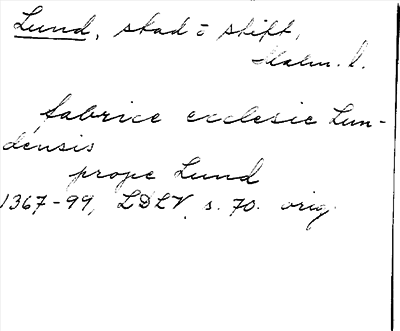 Lund, stad o stift,
Malm. l.
fabrice ecclesie Lun-
densis
prope Lund
1367-99, LDLV, s. 70. orig.